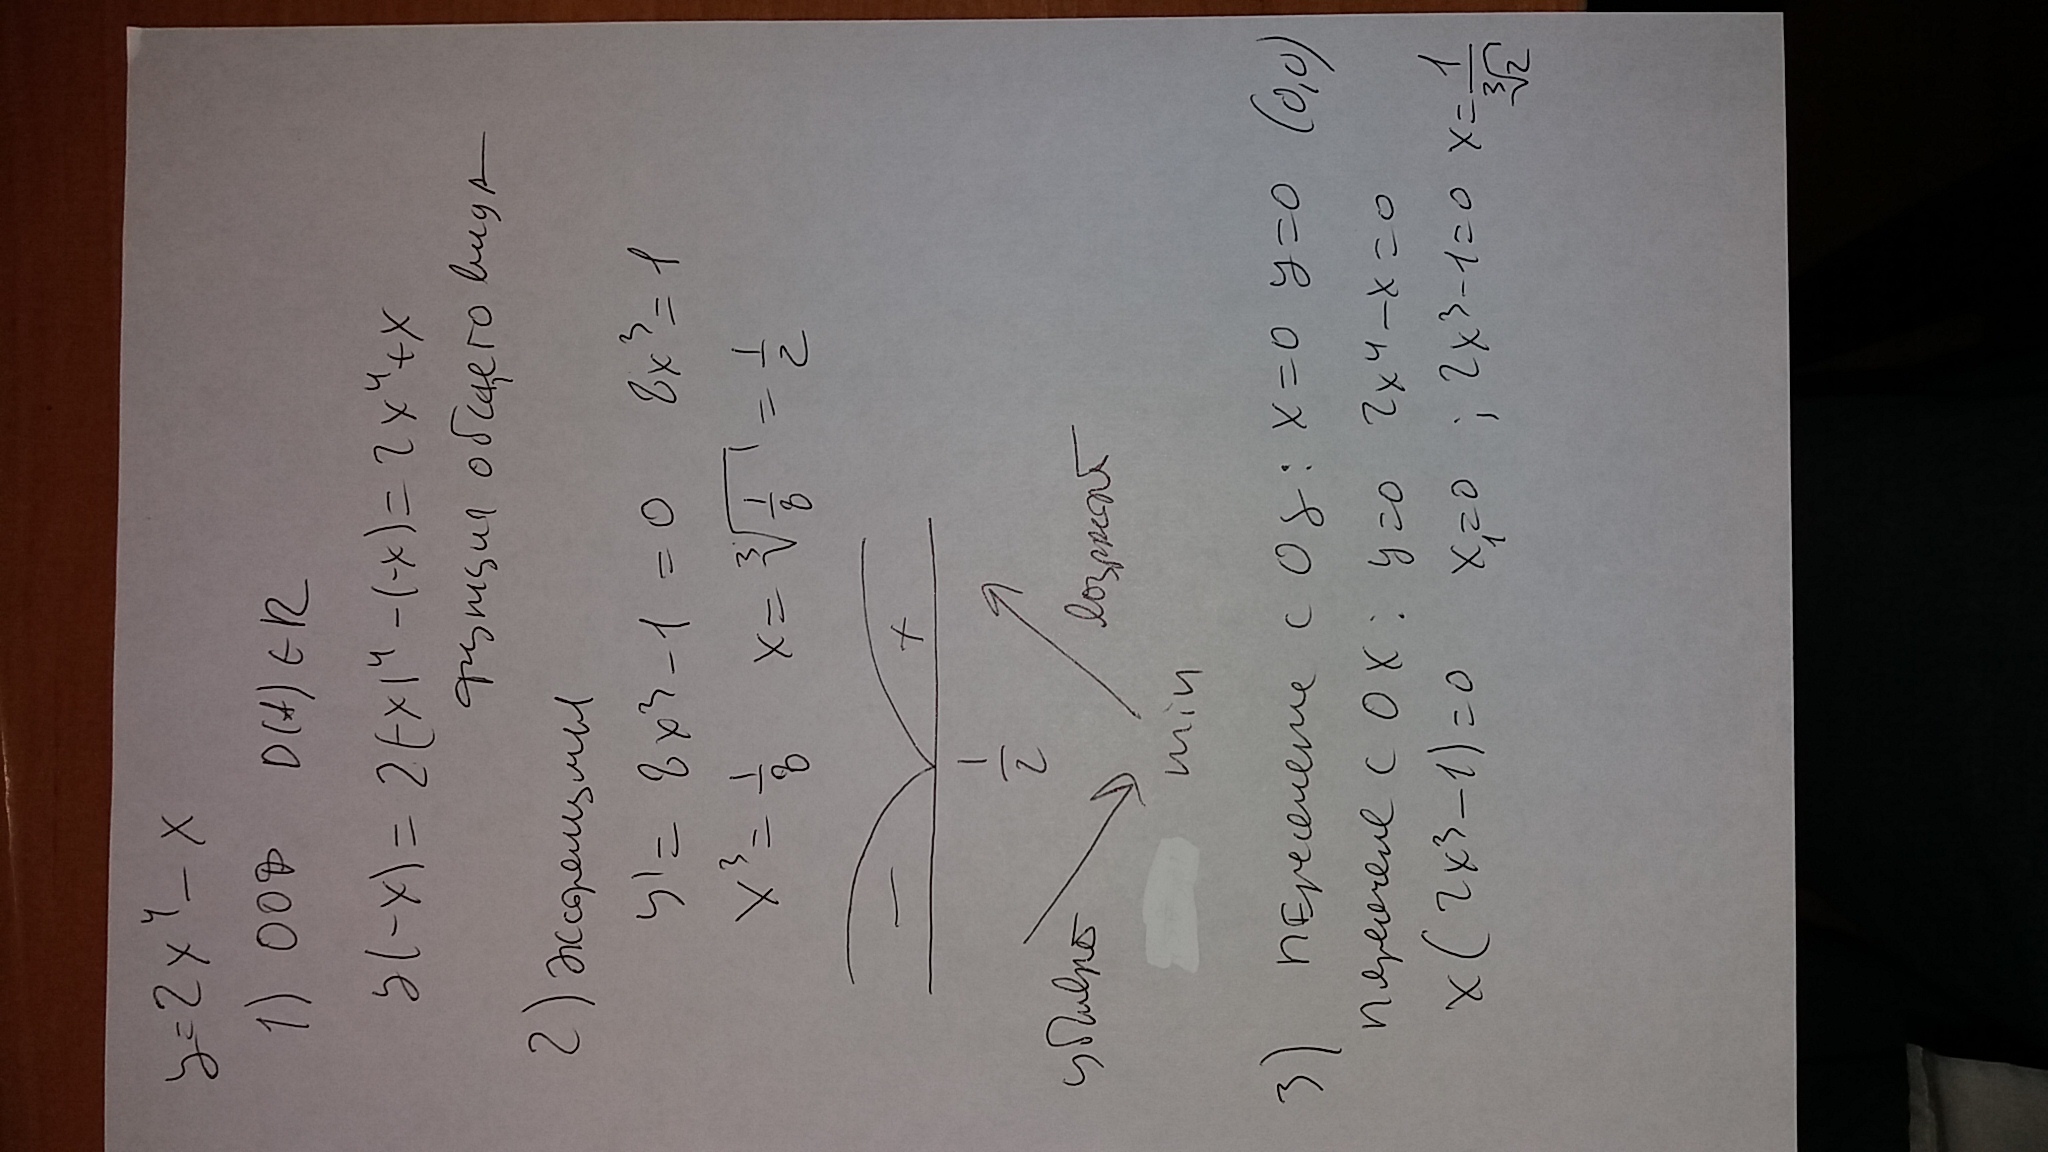 y=2x⁴-x
1) ООФ D(f)∈R
y(-x)=2(-x)⁴-(-x)=2x⁴+x
функция общего вида
2) экстремумы
y'=8x³-1=0 8x³=1
x³=1/8 x=∛(1/8)=1/2
- +
1/2
убывает возрастает
min
3) пересечение с Oy: x=0 y=0 (0,0)
пересечение с OX: y=0 2x⁴-x=0
x(2x³-1)=0 x₁=0 ; 2x³-1=0 x=1/∛2